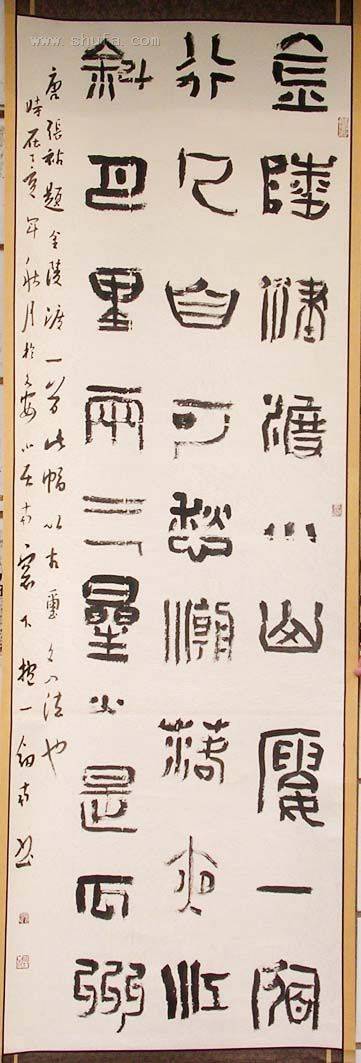 www.shufa.com
金陵津渡小山樓一宿
行人自可愁潮落夜江
斜月里兩三星火是瓜洲
唐張祜題金陵渡一首此幅以古璽文入法也
時在丁亥年秋月於小居南窗下一書